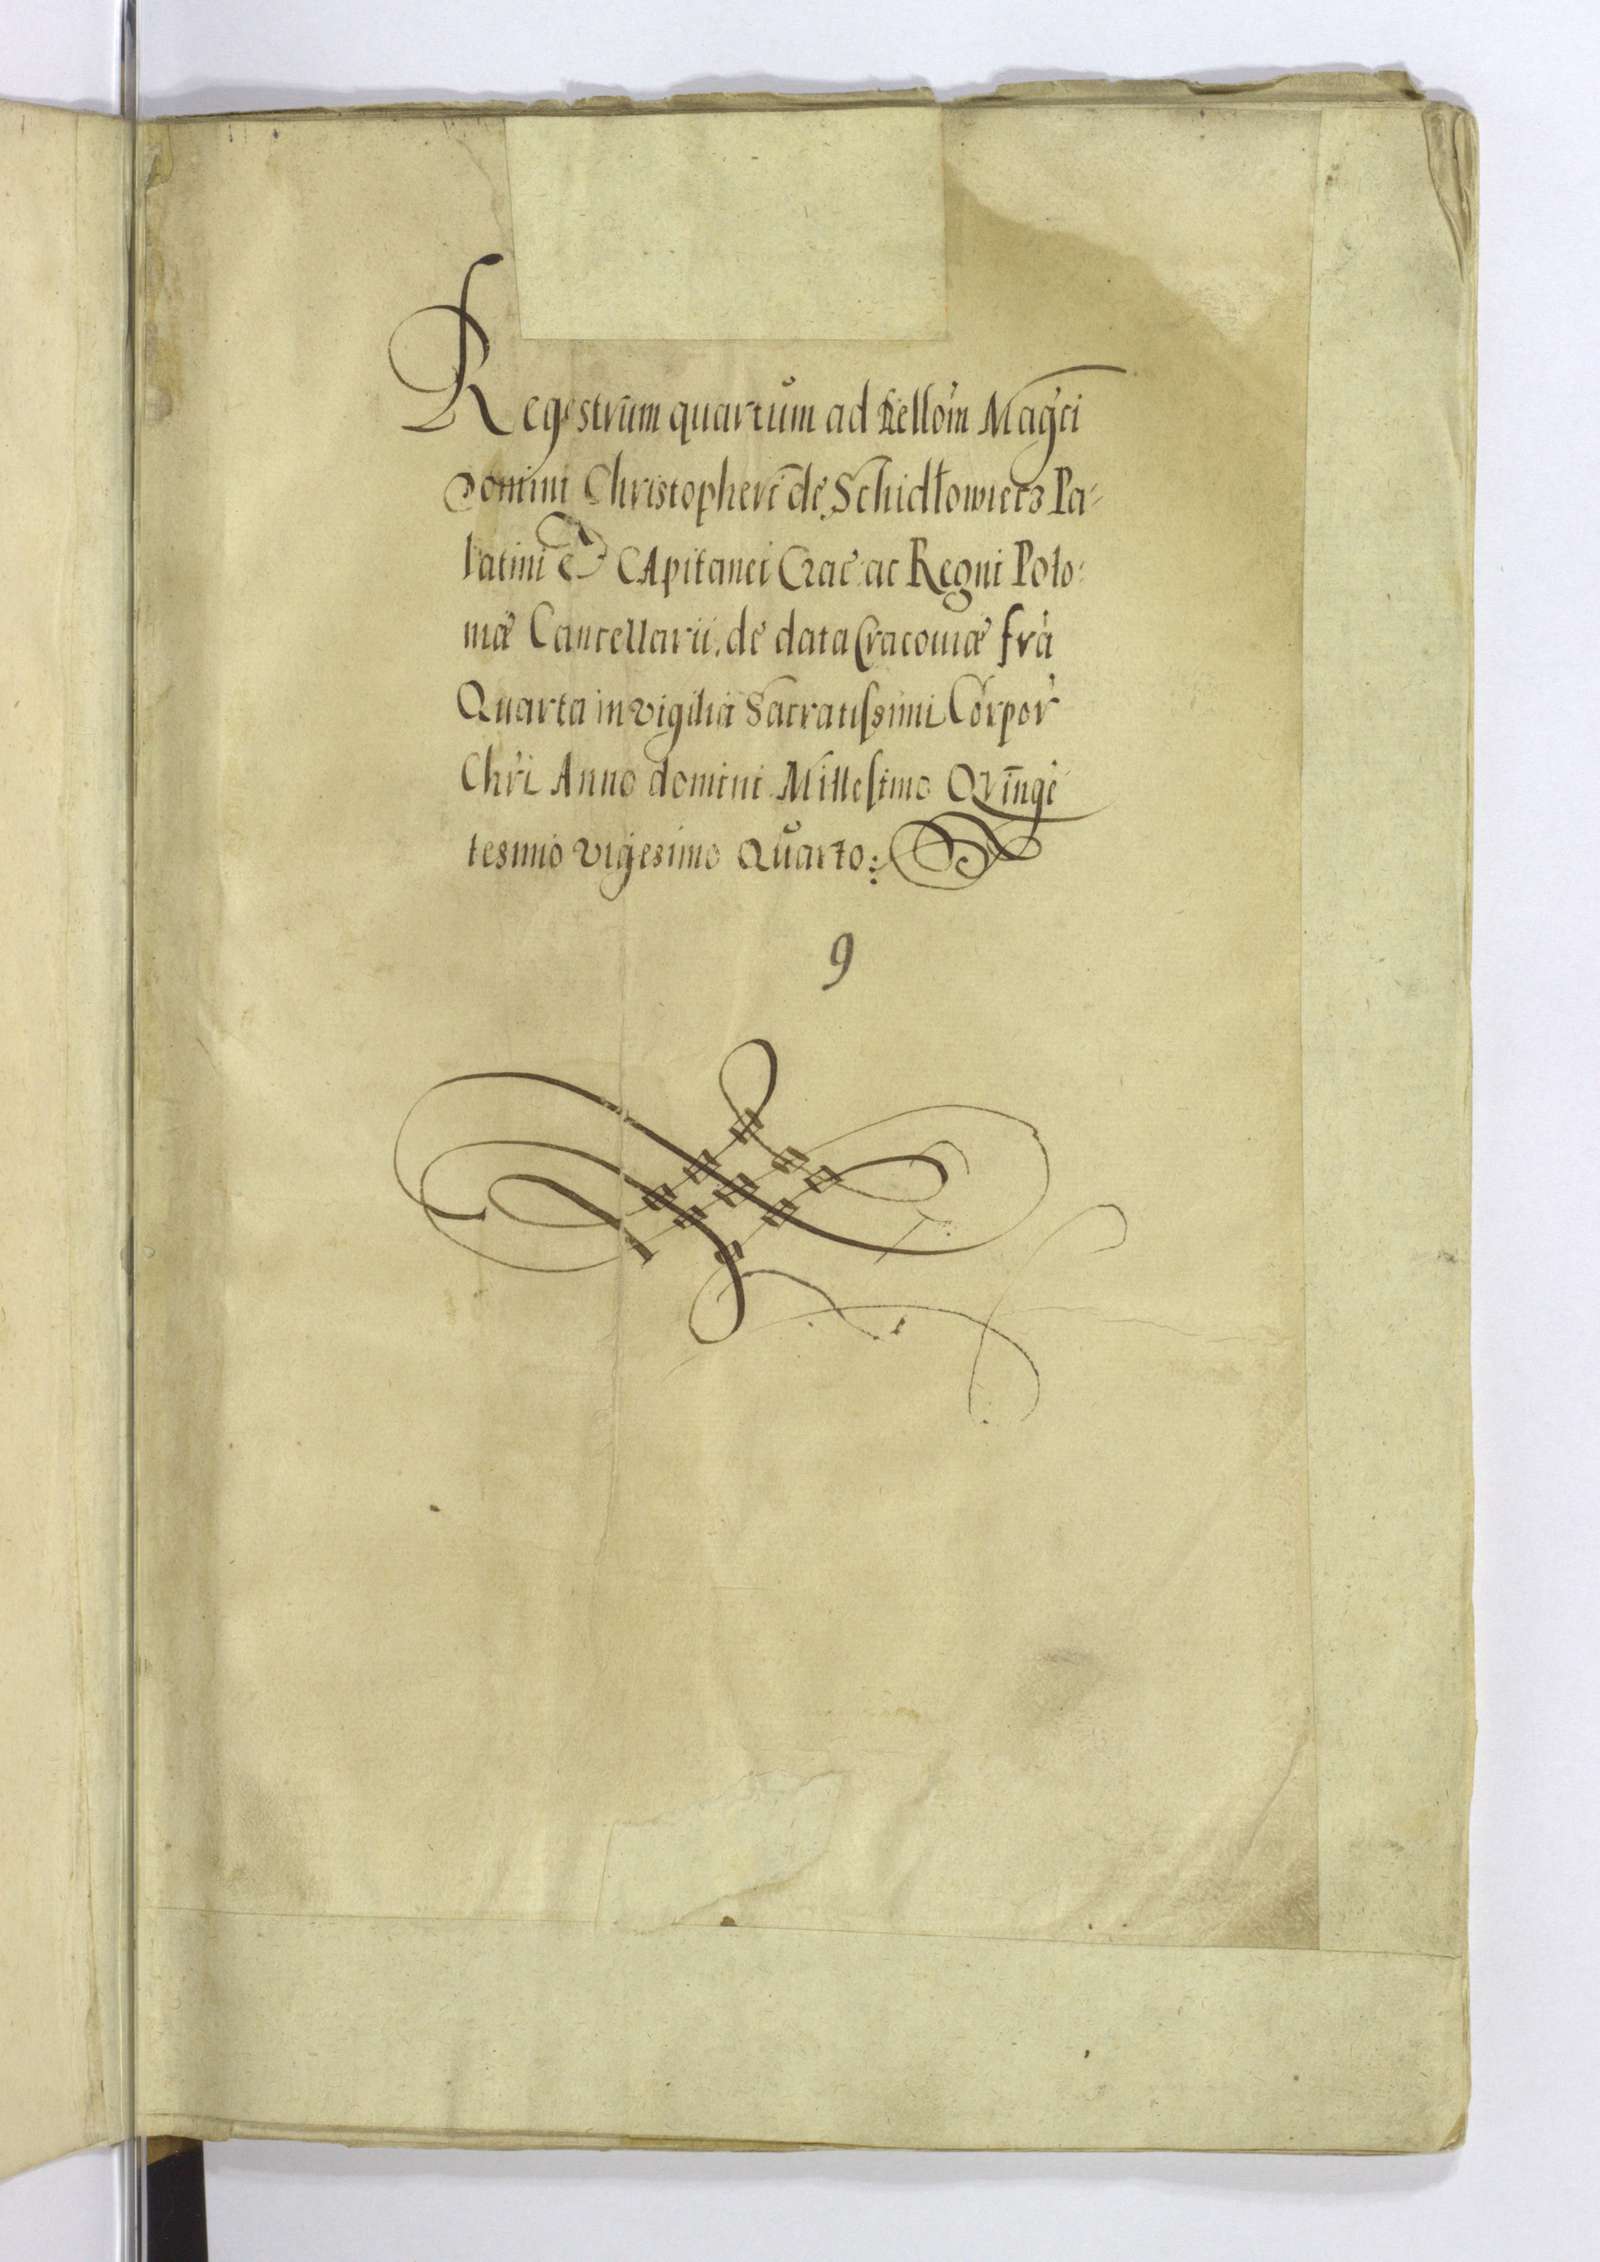 Regestrum quartum ad Rellom̃ Mag͂ci
Domini Christopheri de Schidłowiecz Pa-
latini & CApitanei Crac̃ ac Regni Polo-
niæ Cancellarii, de data Cracoviæ fr̃a
Quarta in vigilia Sacratissimi Corpor̃
Chr̃i Anno domini Millesimo Qvinḡe
tesimo vigesimo Quarto:
9